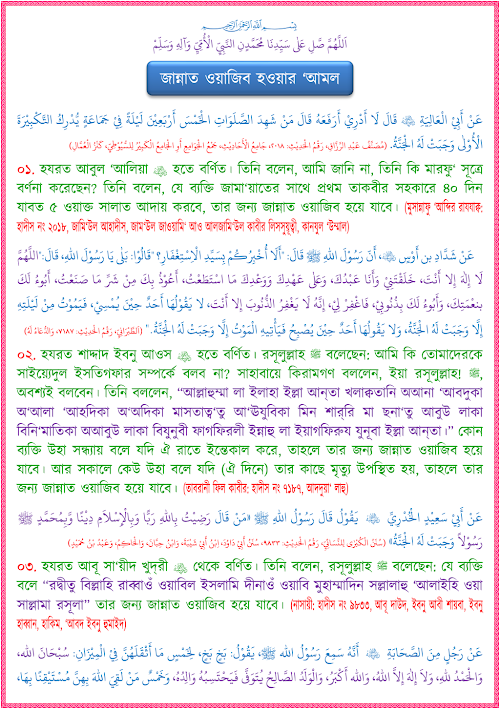 اَللّٰهُمَّ صَلِّ عَلٰى سَيِّدِنَا مُحَمَّدِنِ النَّبِيِّ الْأُمِّيِّ وَآلِهٖ وَسَلِّمْ
জান্নাত ওয়াজিব হওয়ার ‘আমল
عَنْ أَبِي الْعَالِيَةِ ﷺ قَالَ لَا أَدْرِي أَرَفَعَهُ قَالَ مَنْ شَهِدَ الصَّلَوَاتِ الْخَمْسَ أَرْبَعِيْنَ لَيْلَةً فِيْ جَمَاعَةٍ يُدْرِكُ التَّكْبِيْرَةَ
الْأُوْلٰى وَجَبَتْ لَهُ الْجَنَّةُ. (مُصَنَّفُ عَبْدِ الرَّزَّاقِ، رَقْمُ الْحَدِيْثِ: ٢٠١٨، جَامِعُ الْأَحَادِيْثِ، جَمْعُ الْجَوَامِعِ أَوِ الْجَامِعُ الْكَبِيْرُ لِلسُّيُوْطِيِّ، كَنْزُ الْعُمَّالِ)
০১. হযরত আবুল ‘আলিয়া হতে বর্ণিত। তিনি বলেন, আমি জানি না, তিনি কি মারফূ‘ সূত্রে
বর্ণনা করেছেন? তিনি বলেন, যে ব্যক্তি জামা‘য়াতের সাথে প্রথম তাকবীর সহকারে ৪০ দিন
যাবত ৫ ওয়াক্ত সালাত আদায় করবে, তার জন্য জান্নাত ওয়াজিব হয়ে যাবে। (মুসান্নাফু ‘আব্দির রাযযাক্ব:
হাদীস নং ২০১৮, জামি‘উল আহাদীস, জাম‘উল জাওয়ামি‘ আও আলজামি‘উল কাবীর লিসসুয়ূত্বী, কানযুল ‘উম্মাল)
عَنْ شَدَّادِ بْنِ أَوْسٍ، أَنَّ رَسُوْلَ اللهِ ﷺ قَالَ: "أَلَا أُخْبِرُكُمْ بِسَيِّدِ الْاِسْتِغْفَارِ؟" قَالُوْا: بَلٰى يَا رَسُوْلَ اللهِ، قَالَ: "اَللّٰهُمَّ
لَا إِلٰهَ إِلَّا أَنْتَ، خَلَقْتَنِيْ وَأَنَا عَبْدُكَ، وَعَلٰى عَهْدِكَ وَوَعْدِكَ مَا اسْتَطَعْتُ، أَعُوْذُ بِكَ مِنْ شَرِّ مَا صَنَعْتُ، أَبُوْءُ لَكَ
بِنِعْمَتِكَ، وَأَبُوْءُ لَكَ بِذُنُوْبِيْ، فَاغْفِرْ لِيْ، إِنَّهُ لَا يَغْفِرُ الذُّنُوْبَ إِلَّا أَنْتَ، لَا يَقُوْلُهَا أَحَدٌ حِيْنَ يُمْسِيْ، فَيَمُوْتُ مِنْ لَيْلَتِهِ
إِلَّا وَجَبَتْ لَهُ الْجَنَّةُ، وَلَا يَقُوْلُهَا أَحَدٌ حِيْنَ يُصْبِحُ فَيَأْتِيْهِ الْمَوْتُ إِلَّا وَجَبَتْ لَهُ الْجَنَّةُ." (الطَّبَرَانِيُّ، رَقْمُ الْحَدِيْثِ: ٧١٨٧، وَالدُّعَاءُ لَهُ)
০২. হযরত শাদ্দাদ ইবনু আওস হতে বর্ণিত। রসূলুল্লাহ ﷺ বলেছেন: আমি কি তোমাদেরকে
সাইয়্যেদুল ইসতিগফার সম্পর্কে বলব না? সাহাবায়ে কিরামগণ বললেন, ইয়া রসূলুল্লাহ! ﷺ,
অবশ্যই বলবেন। তিনি বললেন, “আল্লাহুম্মা লা ইলাহা ইল্লা আন্‌তা খলাক্বতানি অআনা ‘আবদুকা
অ‘আলা ‘আহদিকা অ‘অদিকা মাসতাত্ব‘তু আ‘ঊযুবিকা মিন শার্‌রি মা ছনা‘তু আবুউ লাকা
বিনি‘মাতিকা অআবুউ লাকা বিযুনুবী ফাগফিরলী ইন্নাহু লা ইয়াগফিরুয যুনূবা ইল্লা আন্‌তা।” কোন
ব্যক্তি উহা সন্ধ্যায় বলে যদি ঐ রাতে ইন্তেকাল করে, তাহলে তার জন্য জান্নাত ওয়াজিব হয়ে
যাবে। আর সকালে কেউ উহা বলে যদি (ঐ দিনে) তার কাছে মৃত্যু উপস্থিত হয়, তাহলে তার
জন্য জান্নাত ওয়াজিব হয়ে যাবে। (তাবরানী ফিল কাবীর: হাদীস নং ৭১৮৭, আদদুয়া‘ লাহু)
عَنْ أَبِيْ سَعِيْدٍ الْخُدْرِيِّ يَقُوْلُ قَالَ رَسُوْلُ اللهِ ﷺ «مَنْ قَالَ رَضِيْتُ بِاللهِ رَبًّا وَبِالْإِسْلَامِ دِيْنًا وَّبِمُحَمَّدٍ ﷺ
رَسُوْلًا وَجَبَتْ لَهُ الْجَنَّةُ» (سُنَنُ الْكُبْرٰى لِلنَّسَائِيِّ، رَقْمُ الْحَدِيْثِ: ٩٨٣٣، سُنَنُ أَبِيْ دَاوُدَ، اِبْنُ أَبِيْ شَيْبَةَ، وَابْنُ حِبَّانَ، وَالْحَاكِمُ، وَعَبْدُ بْنُ حُمَيْدٍ)
০৩. হযরত আবূ সা‘য়ীদ খুদ্‌রী থেকে বর্ণিত। তিনি বলেন, রসূলুল্লাহ ﷺ বলেছেন: যে ব্যক্তি
বলে “রদ্বীতু বিল্লাহি রাব্বাওঁ ওয়াবিল ইসলামি দীনাওঁ ওয়াবি মুহাম্মাদিন সল্লাল্লাহু ‘আলাইহি ওয়া
সাল্লামা রসূলা” তার জন্য জান্নাত ওয়াজিব হয়ে যাবে। (নাসায়ী: হাদীস নং ৯৮৩৩, আবূ দাউদ, ইবনু আবী শায়বা, ইবনু
হিব্বান, হাকিম, ‘আবদ ইবনু হুমাইদ)
عَنْ رَجُلٍ مِنَ الصَّحَابَةِ أَنَّهُ سَمِعَ رَسُوْلَ اللهِ ﷺ، يَقُوْلُ: بَخٍ بَخٍ، لِخَمْسٍ مَا أَثْقَلَهُنَّ فِي الْمِيْزَانِ: سُبْحَانَ اللهِ،
وَالْحَمْدُ لِلّٰهِ، وَلَا إِلٰهَ إِلَّا اللهُ، وَاللهُ أَكْبَرُ، وَالْوَلَدُ الصَّالِحُ يُتَوَفّٰى فَيَحْتَسِبُهُ وَالِدُهُ، وَخَمْسٌ مَنْ لَقِيَ اللهَ بِهِنَّ مُسْتَيْقِنًا بِهَا،